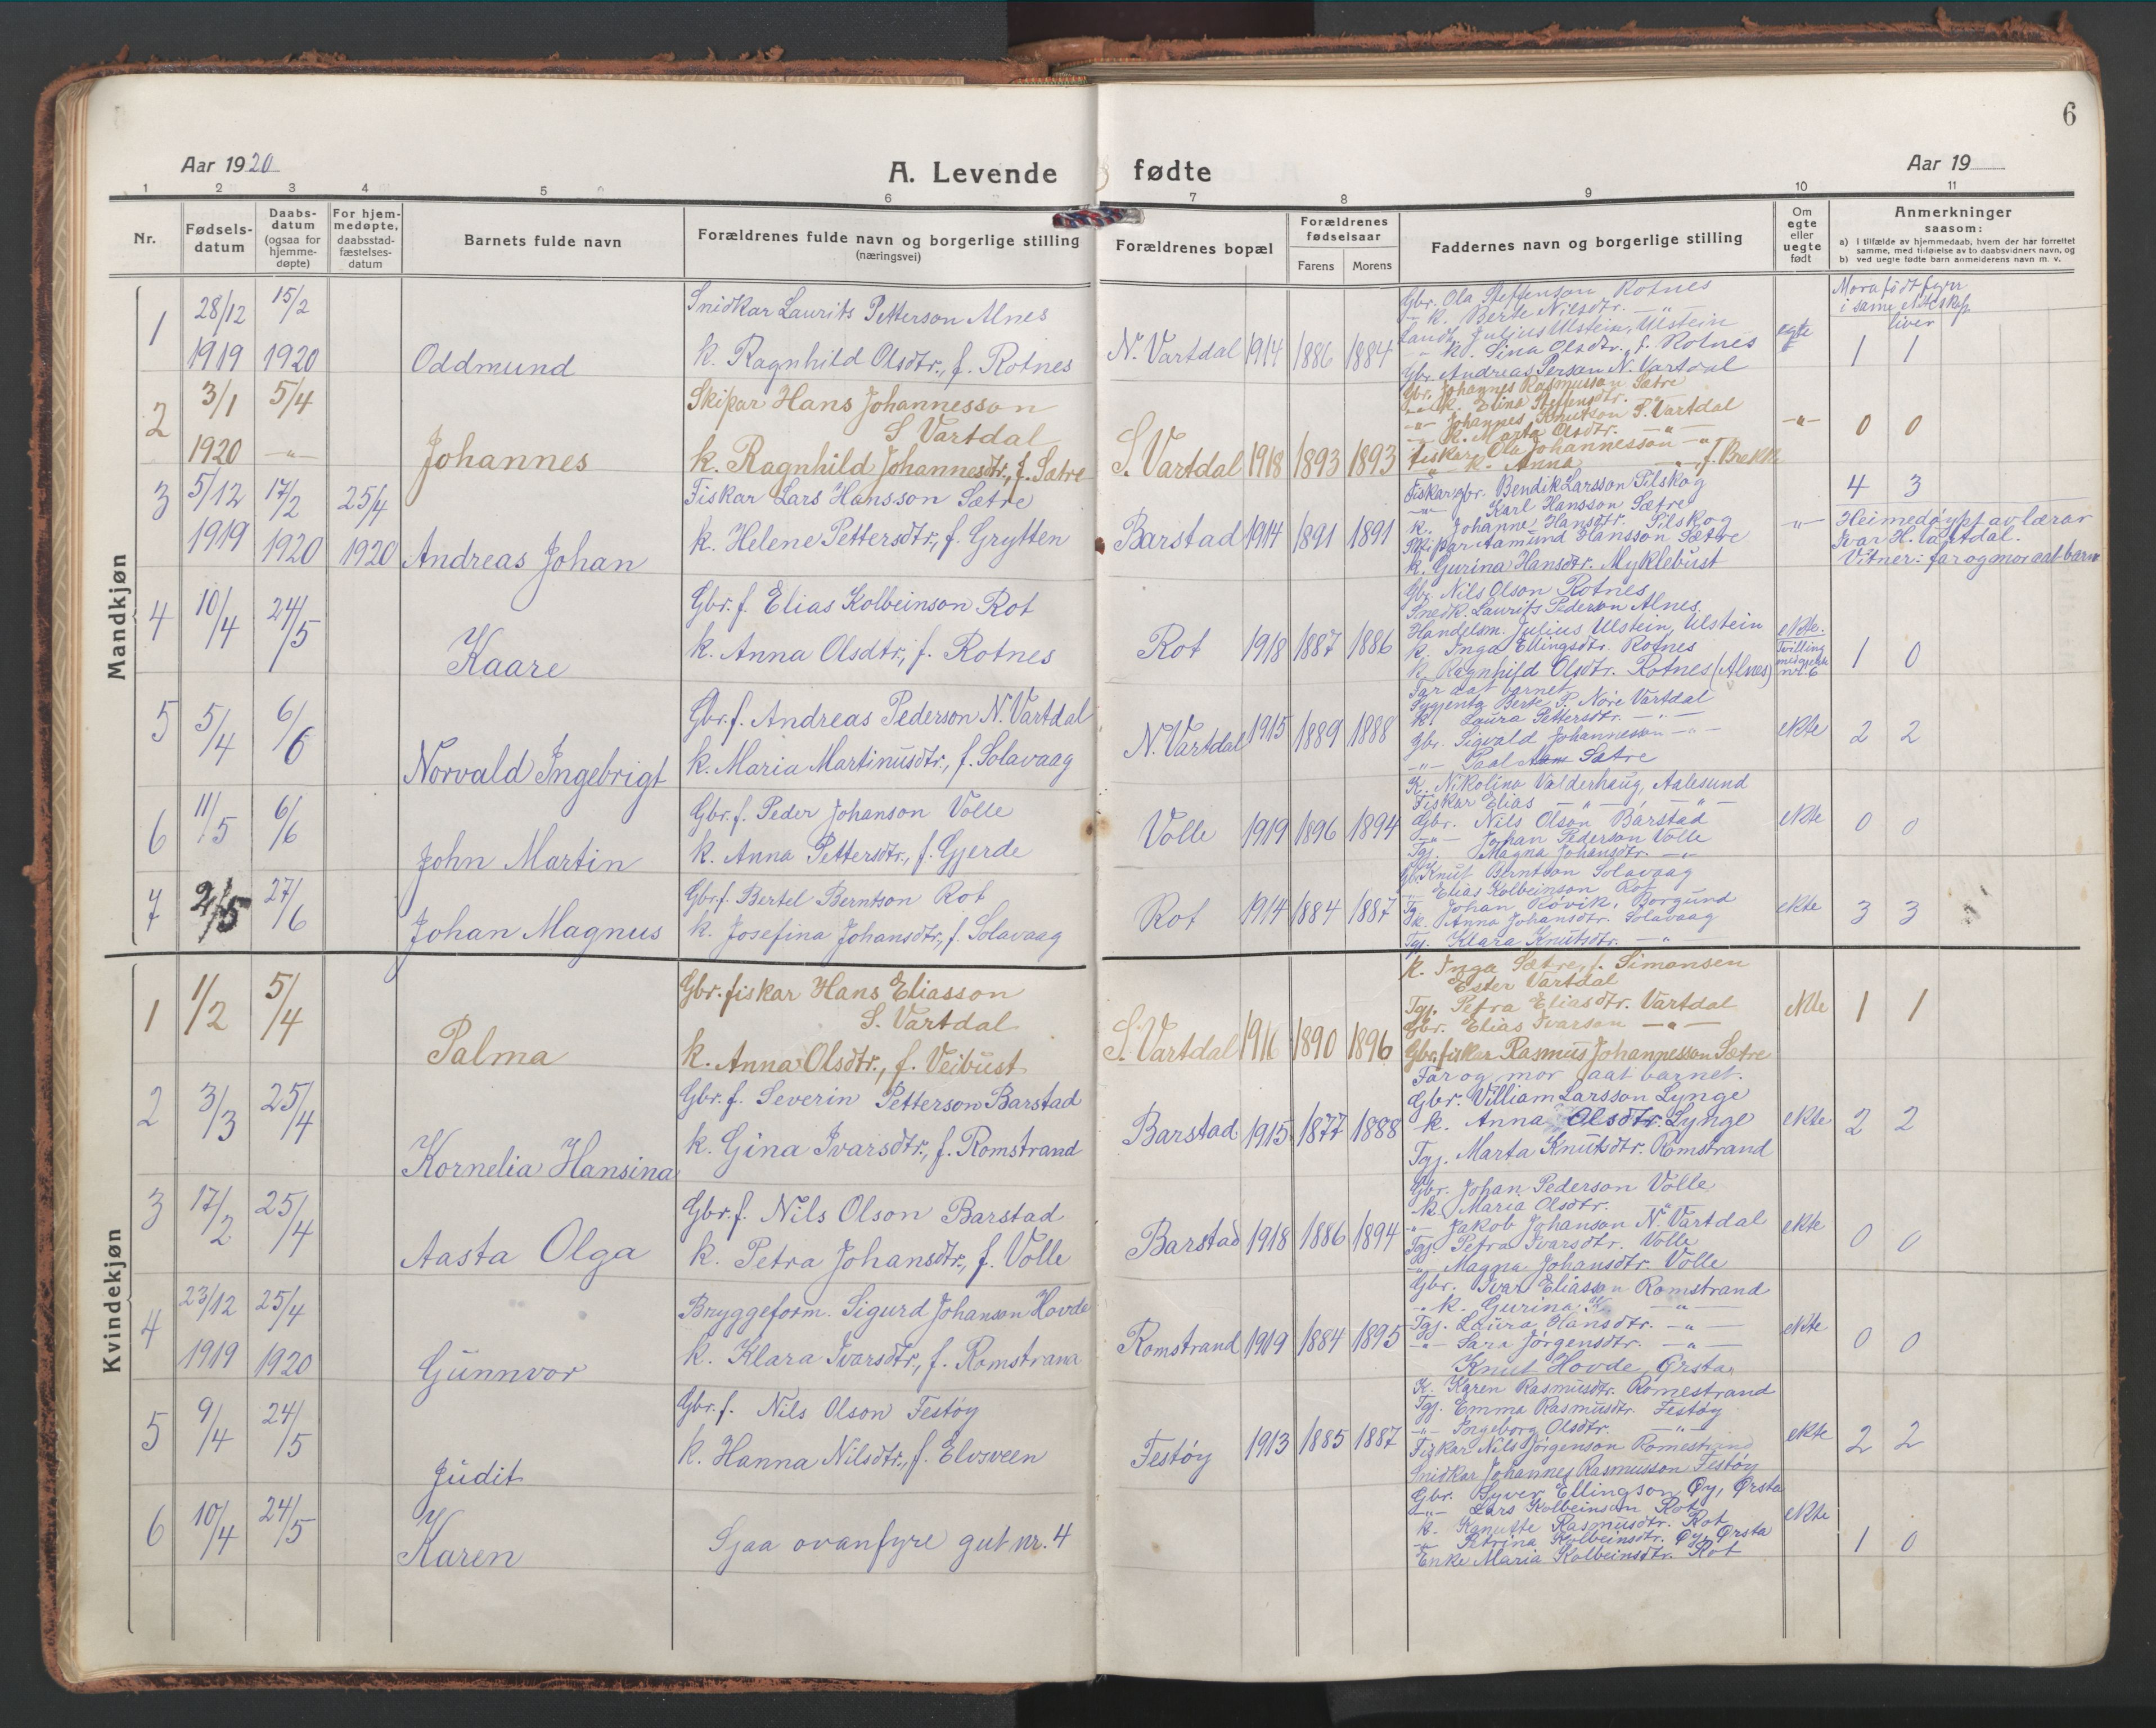 6
Aar 1920
A. Levende fødte
Aar 19
1 2 3 4 5 6 7 8 9 10 11
Nr.
Fødsels-datum
Daabs-datum (ogsaa for hjemme-døpte)
For hjem-medøpte, daabsstad-fæstelses-datum
Barnets fulde navn
Forældrenes fulde navn og borgerlige stilling
(næringsvei)
Forældrenes bopæl
Forældrenes fødselsaar
Farens Morens
Faddernes navn og borgerlige stilling
Om egte eller uegte født
Anmerkninger
saasom:
a) I tilfælde av hjemmedaab, hvem der har forrettet samme, med tilføielse av to daabsvidners navn, og
b) ved uegte fødte barn anmelderens navn m. v.
Mandkjøn
1 28/12 1919 15/2 1920 Oddmund
Snidkar Laurits Petterson Alnes
k. Ragnhild Olsdtr., f. Rotnes
N. Vartdal 1914 1886 1884
Gbr. Ola Steffenson Rotnes
k. Berte Nilsdtr. —"—
Landh. Julius Ulstein, Ulstein
" k. Sina Olsdtr., f. Rotnes
Gbr. Andreas Person N. Vartdal
egte
Mora født fyrr
i same ekteskap
liver
1 1
2 3/1 1920 5/4 —"— Johannes
Skipar Hans Johannesson
S Vartdal
k. Ragnhild Johannesdtr., f. Sætre
S. Vartdal 1918 1893 1893
Gbr. Johannes Rasmusson Sætre
—"— k. Elina Steffensdtr. "
—"— Johannes Knutson S. Vartdal
—"— k. Marta Olsdtr. —"—
fiskar Ola Johannesson —"—
" k. Anna —"— f. Brekke
—"— 0 0
3 5/12 1919 17/2 1920 25/4 1920 Andreas Johan
Fiskar Lars Hansson Sætre
k. Helene Pettersdtr., f. Grytten
Barstad 1914 1891 1891
Fiskar gbr. Bendik Larsson Pilskog
—"— Karl Hansson Sætre
k. Johanne Hansdtr. Pilskog
Skipar Aamund Hansson Sætre
k. Gurina Hansdtr. Myklebust
—"— 4 3
Heimedøypt av lærar
Ivar H. Vartdal.
Vitner: far og mor aat barne
4 10/4 24/5 Kaare
Gbr. f. Elias Kolbeinson Rot
k. Anna Olsdtr., f. Rotnes
Rot 1918 1887 1886
Gbr. Nils Olson Rotnes
Snedk. Laurits Pederson Alnes.
Handelsm. Julius Ulstein, Ulstein
k. Inga Ellingsdtr. Rotnes
k. Ragnhild Olsdtr. Rotnes (Alnes)
ekte.
Tvilling
med gjente
nr. 6
1 0
5 5/4 6/6 Norvald Ingebrigt
Gbr. f. Andreas Pederson N. Vartdal
k. Maria Martinusdtr., f. Solavaag
N. Vartdal 1915 1889 1888
Far aat barnet
Tygjenta Berte P. Nore Vartdal
k. Laura Pettersdtr. —"—
Gbr. Sigvald Johannesson —"—
—"— Paal Sætre
ekte 2 2
6 11/5 6/6 John Martin
Gbr. f. Peder Johanson Volle
k. Anna Pettersdtr., f. Gjerde
Volle 1919 1896 1894
K. Nikolina Valderhaug, Aalesund
Fiskar Elias —"— , —"—
Gbr. Nils Olson Barstad
—"— Johan Pederson Volle
Tgj. Magna Johansdtr. —"—
ekte 0 0
7 2/5 27/6 Johan Magnus
Gbr. f. Bertel Berntson Rot
k. Josefina Johansdtr., f. Solavaag
Rot 1914 1884 1887
Gbr. Knut Berntson Solavaag
" Elias Kolbeinson Rot
Johan Røvik, Borgund
k. Anna Johansdtr. Solavaag
Tgj. Klara Knutsdtr. —"—
ekte 3 3
Kvindekjøn
1 1/2 5/4 Palma
Gbr. fiskar Hans Eliasson
S. Vartdal
k. Anna Olsdtr., f. Veibust
S. Vartdal 1916 1890 1896
k. Inga Sætre, f. Simonsen
Ester Vartdal
Tgj. Petra Eliasdtr. Vartdal
Gbr. Elias Ivarson —"—
Gbr. fiskar Rasmus Johannesson Sætre
ekte 1 1
2 3/3 25/4 Kornelia Hansina
Gbr. f. Severin Petterson Barstad
k. Gina Ivarsdtr., f. Romstrand
Barstad 1915 1877 1888
Far og mor aat barnet.
Gbr. Villiam Larsson Lynge
k. Anna Olsdtr. Lynge
Tgj. Marta Knutsdtr. Romstrand
ekte 2 2
3 17/2 25/4 Aasta Olga
Gbr. f. Nils Olson Barstad
k. Petra Johansdtr., f. Volle
Barstad 1918 1886 1894
Gbr. Johan Pederson Volle
k. Maria Olsdtr. —"—
—"— Jakob Johanson N. Vartdal
Tgj. Petra Ivarsdtr. Volle
—"— Magna Johansdtr. Volle
ekte 0 0
4 23/12 1919 25/4 1920 Gunnvor
Bryggeform. Sigurd Johanson Hovde
k. Klara Ivarsdtr., f. Romstrand
Romstrand 1919 1884 1895
Gbr. Ivar Eliasson Romstrand
—"— k. Gurina K. —"—
Tgj. Laura Hansdtr. —"—
—"— Sara Jørgensdtr. —"—
Knut Hovde, Ørsta
ekte 0 0
5 9/4 24/5 Judit
Gbr. f. Nils Olson Festøy
k. Hanna Nilsdtr., f. Elvsveen
Festøy 1913 1885 1887
K. Karen Rasmusdtr. Romestrand
Tgj. Emma Rasmusdtr. Festøy
—"— Ingeborg Olsdtr. —"—
Fiskar Nils Jørgenson Romestrand
Snidkar Johannes Rasmusson Festøy
ekte 2 2
6 10/4 24/5 Karen
Sjaa ovanfyre gut nr. 4
Gbr. Syver Ellingson Øy, Ørsta
—"— Lars Kolbeinson Rot
k. Kanutte Rasmusdtr. Rot
—"— Petrina Kolbeinsdtr. Øy, Ørsta
Enke Maria Kolbeinsdtr. Rot
ekte 1 0